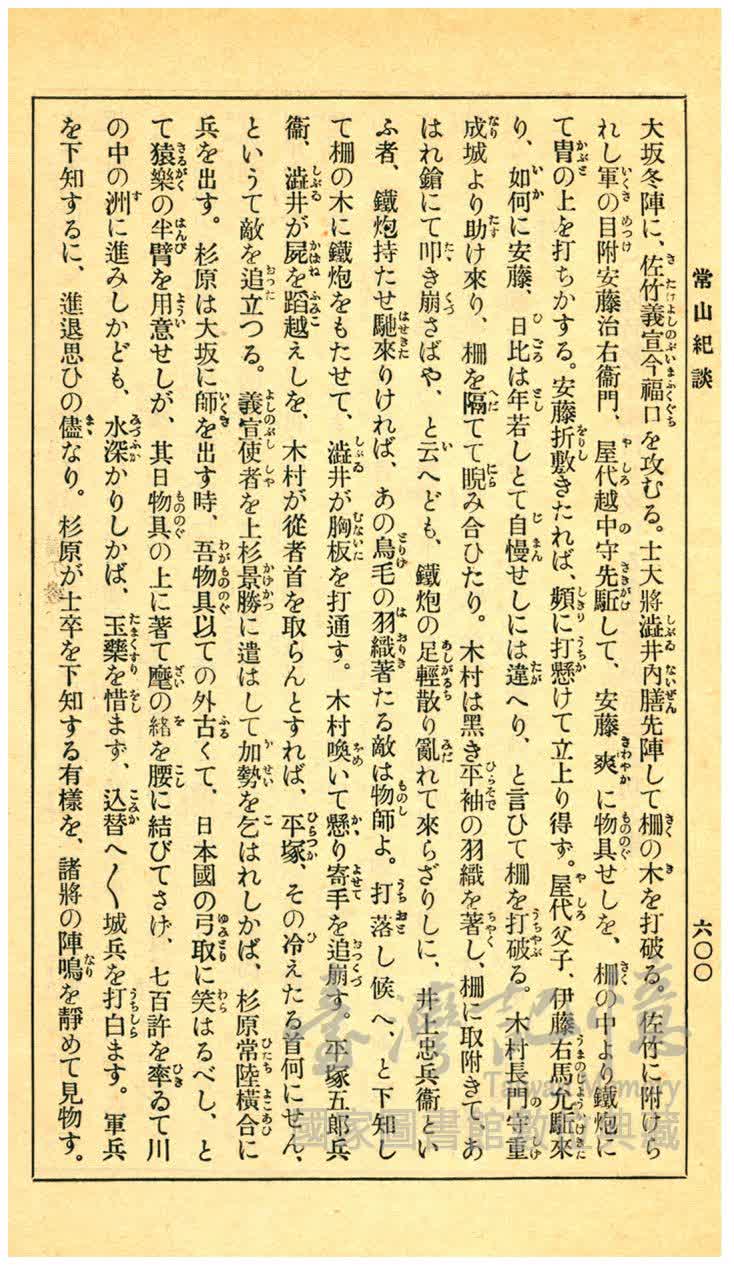 常山紀談
六〇〇
大坂冬陣に、佐竹義宣今福口を攻むる。士大將澁井內膳先陣して柵の木を打破る。佐竹に附けら
れし軍の目附安藤治右衞門、屋代越中守先駈して、安藤爽に物具せしを、柵の中より鐵炮に
て冑の上を打ちかする。安藤折敷きたれば、頻に打懸けて立上り得ず。屋代父子、伊藤右馬允駈來
り、如何に安藤、日比は年若しとて自慢せしには違へり、と言ひて柵を打破る。木村長門守重
成城より助け來り、柵を隔てて睨み合ひたり。木村は黑き平袖の羽織を著し、柵に取附きて、あ
はれ鎗にて叩き崩さばや、と云へども、鐵炮の足輕散り亂れて來らざりしに、井上忠兵衞とい
ふ者、鐵炮持たせ馳來りければ、あの鳥毛の羽織著たる敵は物師よ。打落し候へ、と下知し
て柵の木に鐵炮をもたせて、澁井が胸板を打通す。木村喚いて懸り寄手を追崩す。平塚五郎兵
衞、澁井が屍を蹈越えしを、木村が從者首を取らんとすれば、平塚、その冷えたる首何にせん、
というて敵を追立つる。義宣使者を上杉景勝に遣はして加勢を乞はれしかば、杉原常陸橫合に
兵を出す。杉原は大坂に師を出す時、吾物具以ての外古くて、日本國の弓取に笑はるべし、と
て猿樂の半臂を用意せしが、其日物具の上に著て麾の緖を腰に結びてさげ、七百許を率ゐて川
の中の洲に進みしかども、水深かりしかば、玉藥を惜まず、込替へ〱城兵を打白ます。軍兵
を下知するに、進退思ひの儘なり。杉原が士卒を下知する有樣を、諸將の陣鳴を靜めて見物す。
臺灣記憶
Taiwan Memory
國家圖書館數位典藏